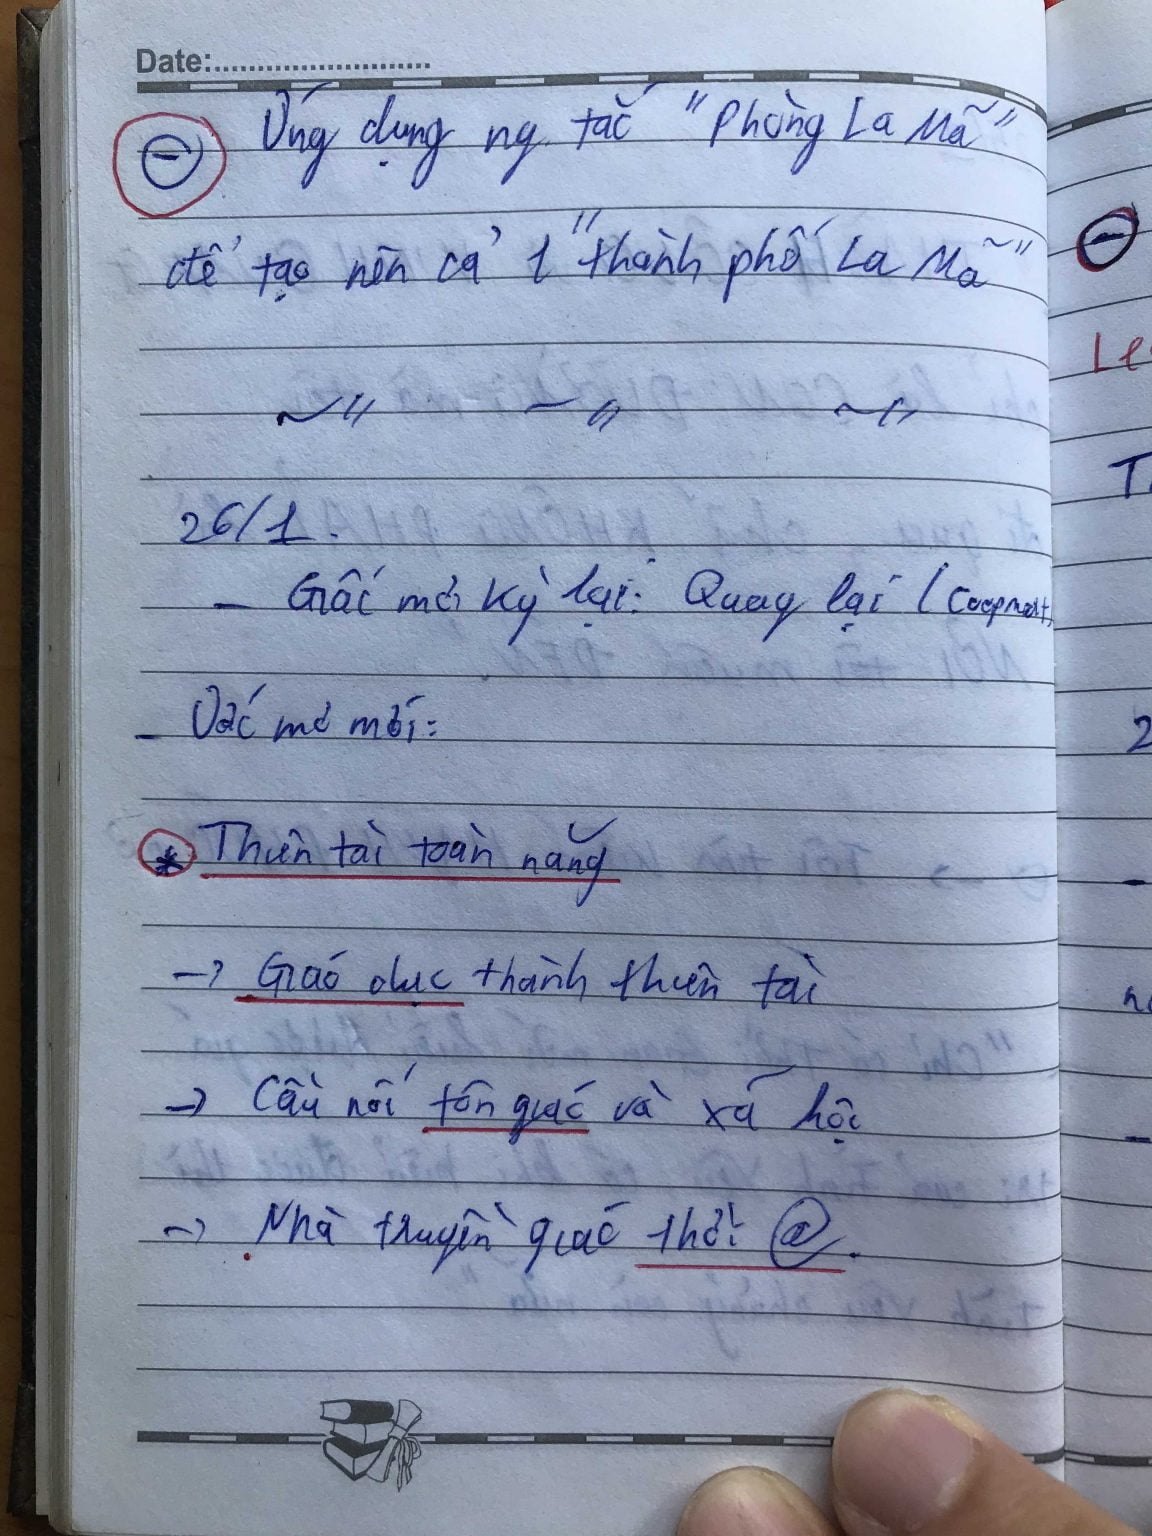 Date:
Ứng dụng ng. tắc "Phòng La Mã"
để tạo nên cả 1 "thành phố La Mã"
26/1.
- Giấc mơ kỳ lạ: Quay lại (Coopmart)
- Ước mơ mới:
* Thiên tài toàn năng
→ Giáo dục thành thiên tài
→ Cầu nối tôn giáo và xã hội
→ Nhà truyền giáo thời @.